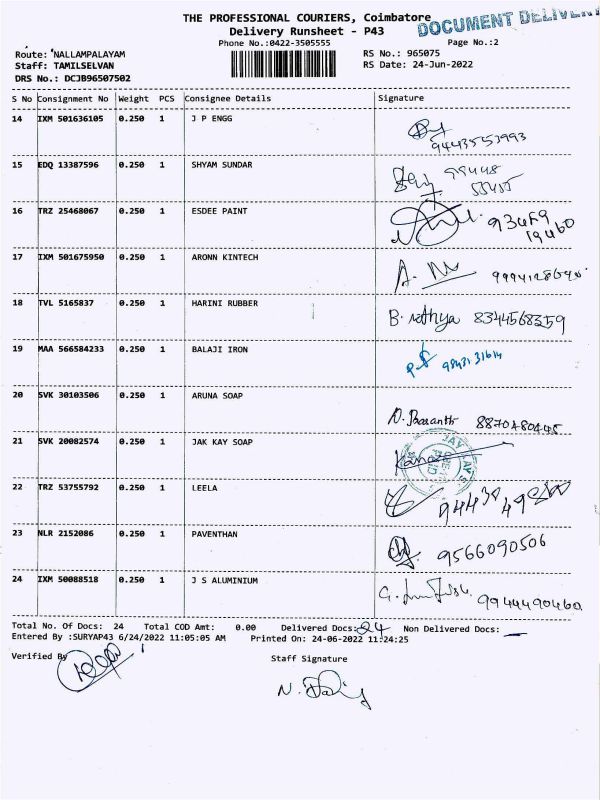 THE PROFESSIONAL COURIERS, Coimbatore
DOCUMENT DELIVERY
Delivery Runsheet - P43
Phone No.:0422-3505555
Page No.:2
Route: 'NALLAMPALAYAM
RS No.: 965075
Staff: TAMILSELVAN
RS Date: 24-Jun-2022
DRS No.: DCJB96507502
S No Consignment No Weight PCS Consignee Details Signature
14 IXM 501636105 0.250 1 J P ENGG
9443553993
15 EDQ 13387596 0.250 1 SHYAM SUNDAR
16 TRZ 25468067 0.250 1 ESDEE PAINT
17 IXM 501675950 0.250 1 ARONN KINTECH
18 TVL 5165837 0.250 1 HARINI RUBBER
B. 8344568359
19 MAA 566584233 0.250 1 BALAJI IRON
20 SVK 30103506 0.250 1 ARUNA SOAP
8870480445
21 SVK 20082574 0.250 1 JAK KAY SOAP
22 TRZ 53755792 0.250 1 LEELA
23 NLR 2152086 0.250 1 PAVENTHAN
9566090506
24 IXM 50088518 0.250 1 J S ALUMINIUM
9944490460
Total No. Of Docs: 24 Total COD Amt: 0.00 Delivered Docs: 24 Non Delivered Docs: —
Entered By :SURYAP43 6/24/2022 11:05:05 AM Printed On: 24-06-2022 11:24:25
Verified By
Staff Signature